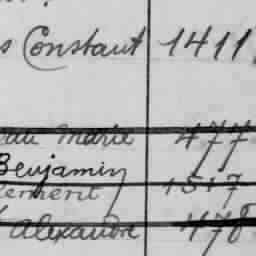 s Constant 1411
eau Marie 477
Benjamin
lement 1517
Alexandre 478